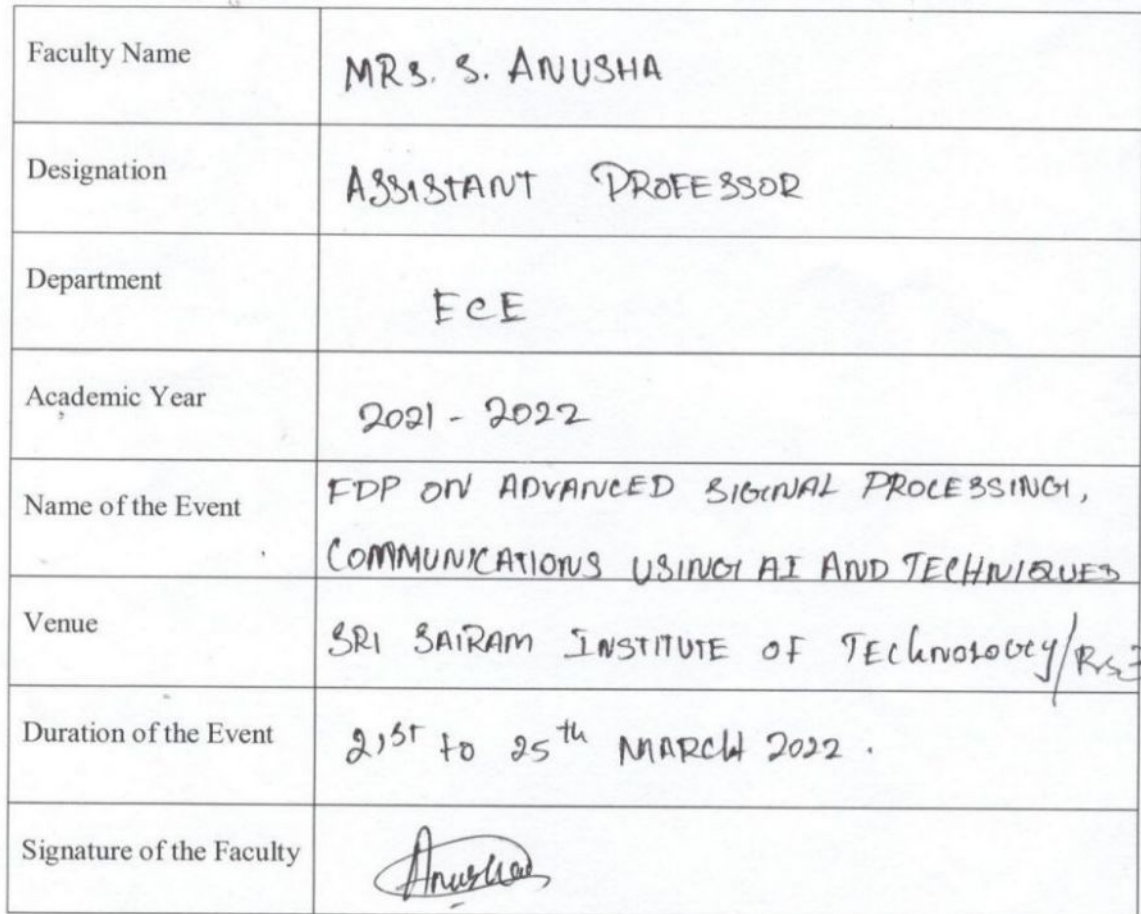 Faculty Name MRS. S. ANUSHA
Designation ASSISTANT PROFESSOR
Department ECE
Academic Year 2021 - 2022
Name of the Event FDP ON ADVANCED SIGNAL PROCESSING,
COMMUNICATIONS USING AI AND TECHNIQUES
Venue SRI SAIRAM INSTITUTE OF TECHNOLOGY/Rs
Duration of the Event 21st to 25th MARCH 2022.
Signature of the Faculty Anusha